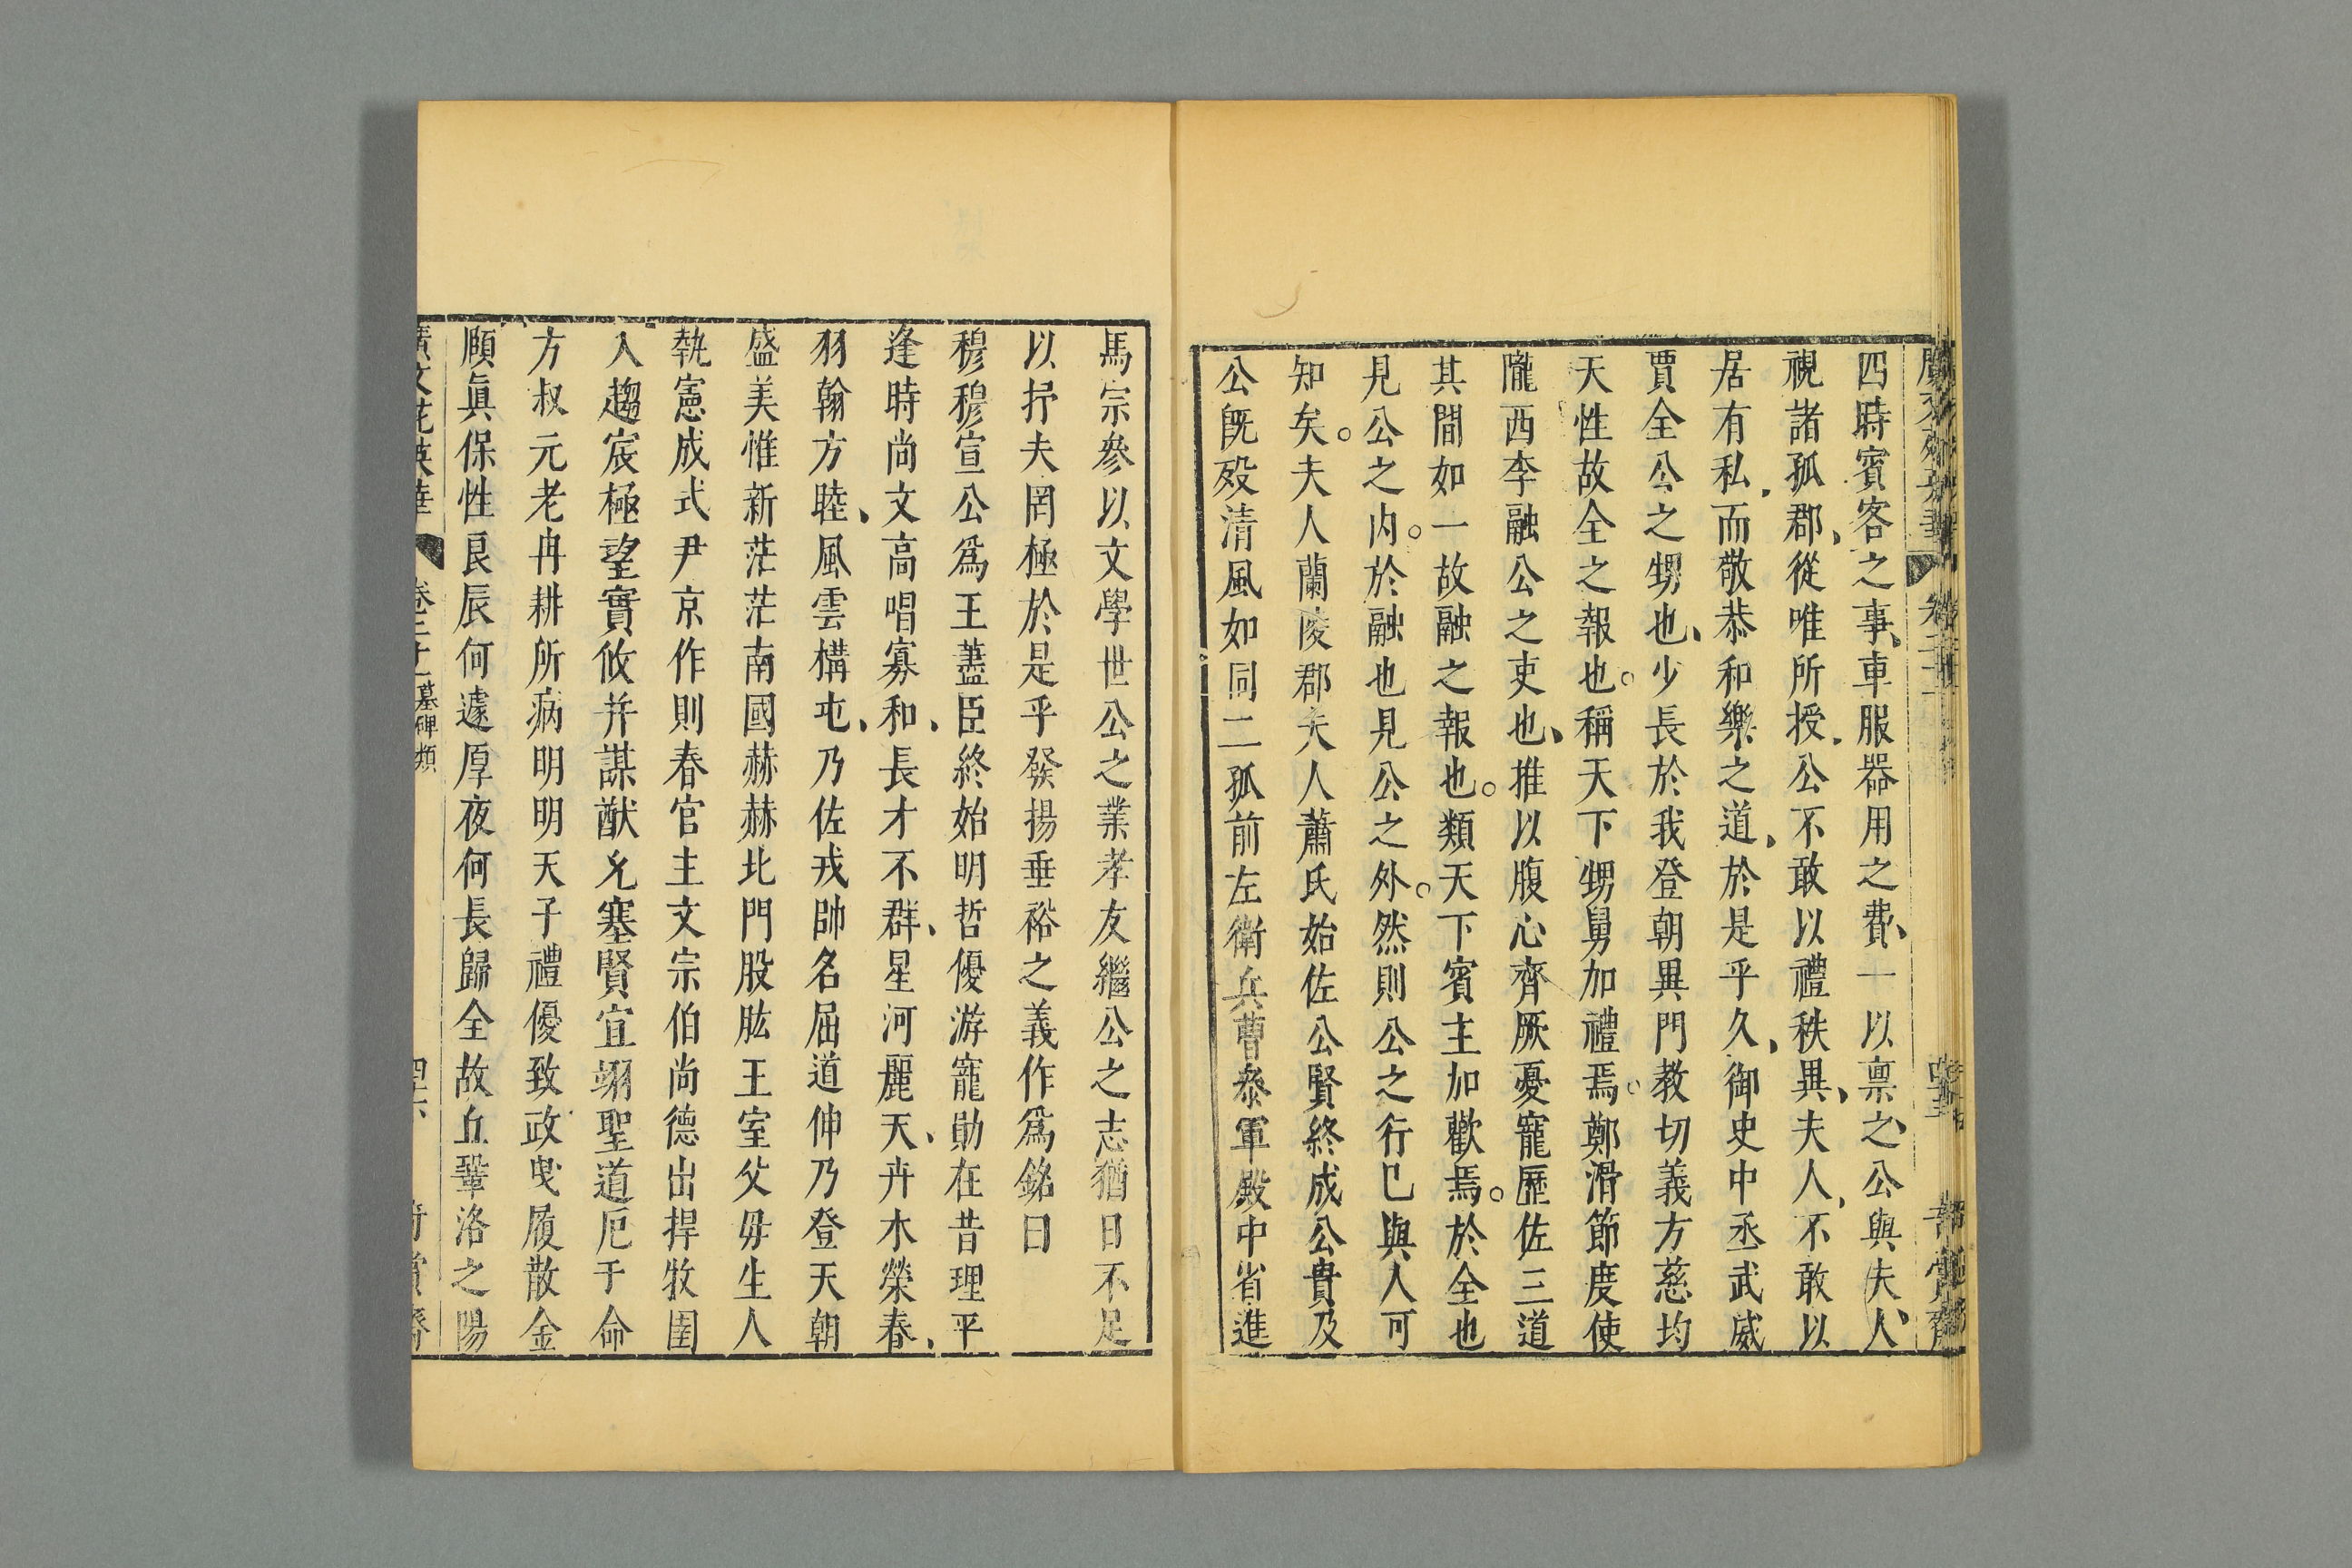 四時賓客之事車服器用之費一以稟之公與夫人
視諸孤郡從唯所授公不敢以禮秩異夫人不敢以
居有私而敬恭和樂之道於是乎久御史中丞武威
賈全公之甥也少長於我登朝異門教切義方慈均
天性故全之報也稱天下甥舅加禮焉鄭滑節度使
隴西李融公之吏也推以腹心齊厥憂寵歷佐三道
其間如一故融之報也類天下賓主加歡焉於全也
見公之內於融也見公之外然則公之行已與人可
知矣夫人蘭陵郡夫人蕭氏始佐公賢終成公貴及
公旣歿清風如同二孤前左衛兵曹叅軍殿中省進
馬宗參以文學世公之業孝友繼公之志猶日不足
以抒夫罔極於是乎發揚垂裕之義作爲銘曰
穆穆宣公爲王藎臣終始明哲優游寵勛在昔理平
逢時尚文高唱寡和長才不群星河麗天卉木榮春
羽翰方睦風雲構屯乃佐戎帥名屈道伸乃登天朝
盛美惟新茫茫南國赫赫北門股肱王室父毋生人
執憲成式尹京作則春官主文宗伯尚德出捍牧圉
入趨宸極望實攸并謀猷允塞賢宜翊聖道厄于命
方叔元老冉耕所病明明天子禮優致政曵履散金
頤眞保性良辰何遽厚夜何長歸全故丘鞏洛之陽
廣文苑英華 卷二十一 墓碑類 四六